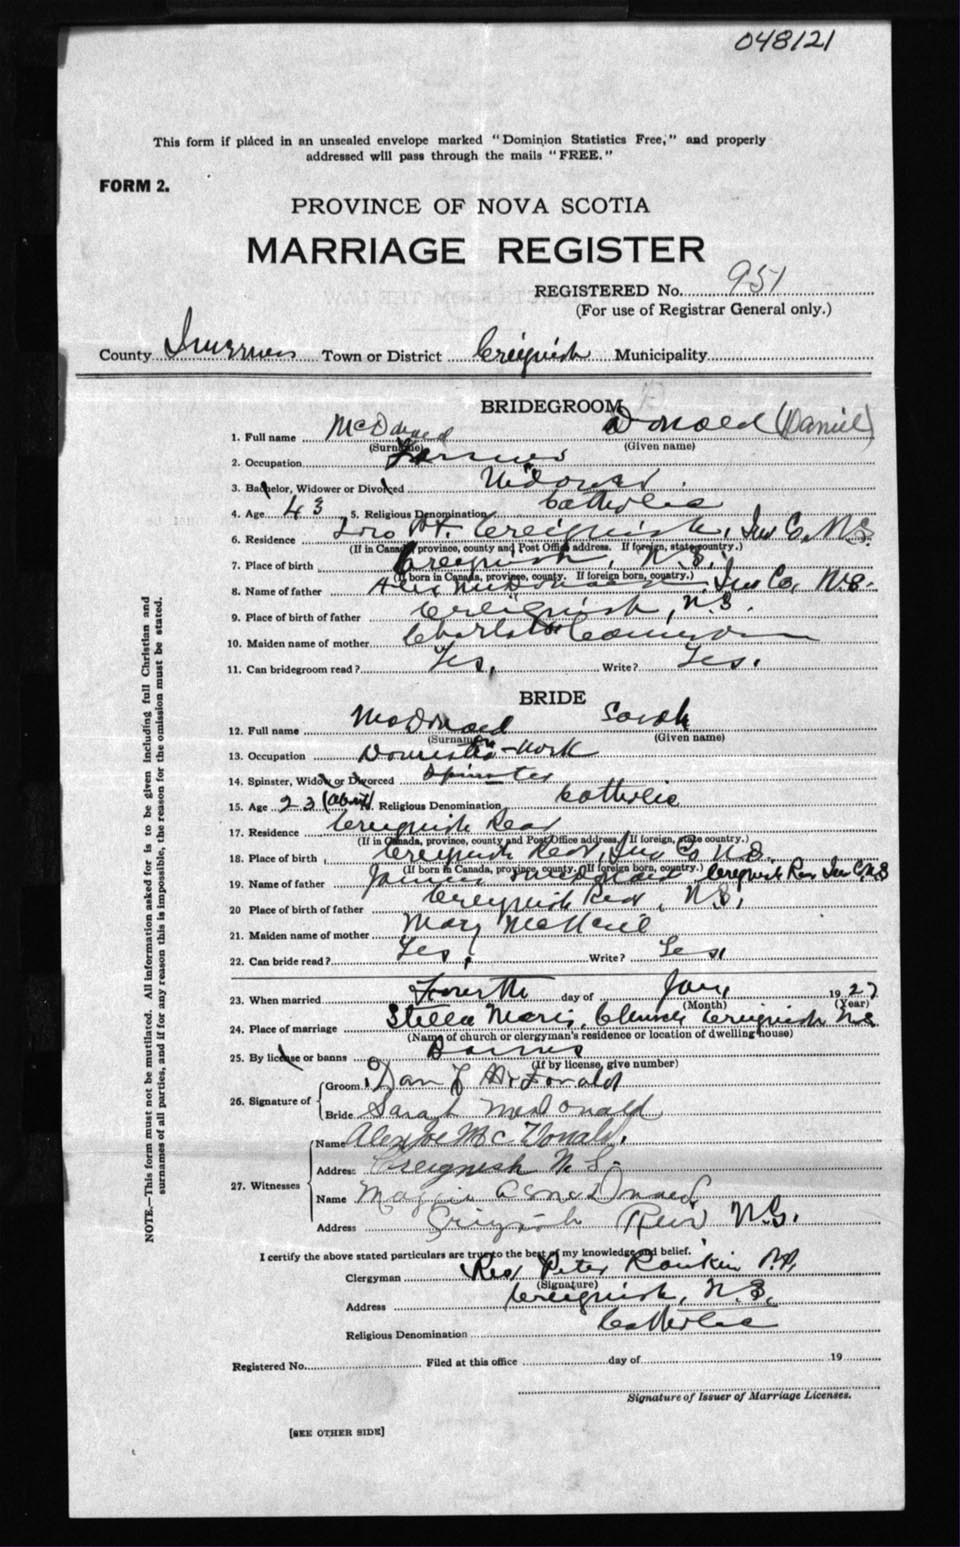 048121
This form if placed in an unsealed envelope marked "Dominion Statistics Free," and properly
addressed will pass through the mails "FREE."
FORM 2.
PROVINCE OF NOVA SCOTIA
MARRIAGE REGISTER
REGISTERED No. 951
(For use of Registrar General only.)
County Inverness Town or District Creignish Municipality
BRIDEGROOM
1. Full name McDonald Donald (Daniel)
(Surname) (Given name)
2. Occupation Farmer
3. Bachelor, Widower or Divorced Widower
4. Age 43 5. Religious Denomination Catholic
6. Residence Creignish, Inv Co, N.S.
(If in Canada, province, county and Post Office address. If foreign, state country.)
7. Place of birth Creignish, N.S.
(If born in Canada, province, county. If foreign born, country.)
8. Name of father Alex McDonald Inv Co, N.S.
9. Place of birth of father Creignish, N.S.
10. Maiden name of mother Charlotte Cameron
11. Can bridegroom read? Yes, Write? Yes.
BRIDE
12. Full name McDonald Sarah
(Surname) (Given name)
13. Occupation Domestic-work
14. Spinster, Widow or Divorced Spinster
15. Age 23 (about) 16. Religious Denomination Catholic
17. Residence Creignish Rear
(If in Canada, province, county and Post Office address. If foreign, state country.)
18. Place of birth Creignish Rear, Inv Co N.S.
(If born in Canada, province, county. If foreign born, country.)
19. Name of father James McDonald, Creignish Rear Inv Co, N.S
20 Place of birth of father Creignish Rear, N.S.
21. Maiden name of mother Mary McNeil
22. Can bride read? Yes, Write? Yes
23. When married Fourth day of Jan, 1927
(Month) (Year)
24. Place of marriage Stella Maris, Church Creignish N.S
(Name of church or clergyman's residence or location of dwelling house)
25. By license or banns Banns
(If by license, give number)
26. Signature of
Groom Dan J McDonald
Bride Sarah McDonald
27. Witnesses
Name McDonald
Address Creignish N.S.
Name Maggie McDonald
Address Creignish Rear N.S.
I certify the above stated particulars are true to the best of my knowledge and belief.
Clergyman Rev Peter Rankin P.P.
(Signature)
Address Creignish, N.S.
Religious Denomination Catholic
Registered No. Filed at this office day of 19
Signature of Issuer of Marriage Licenses.
[SEE OTHER SIDE]
NOTE.—This form must not be mutilated. All information asked for is to be given including full Christian and
surnames of all parties, and if for any reason this is impossible, the reason for the omission must be stated.